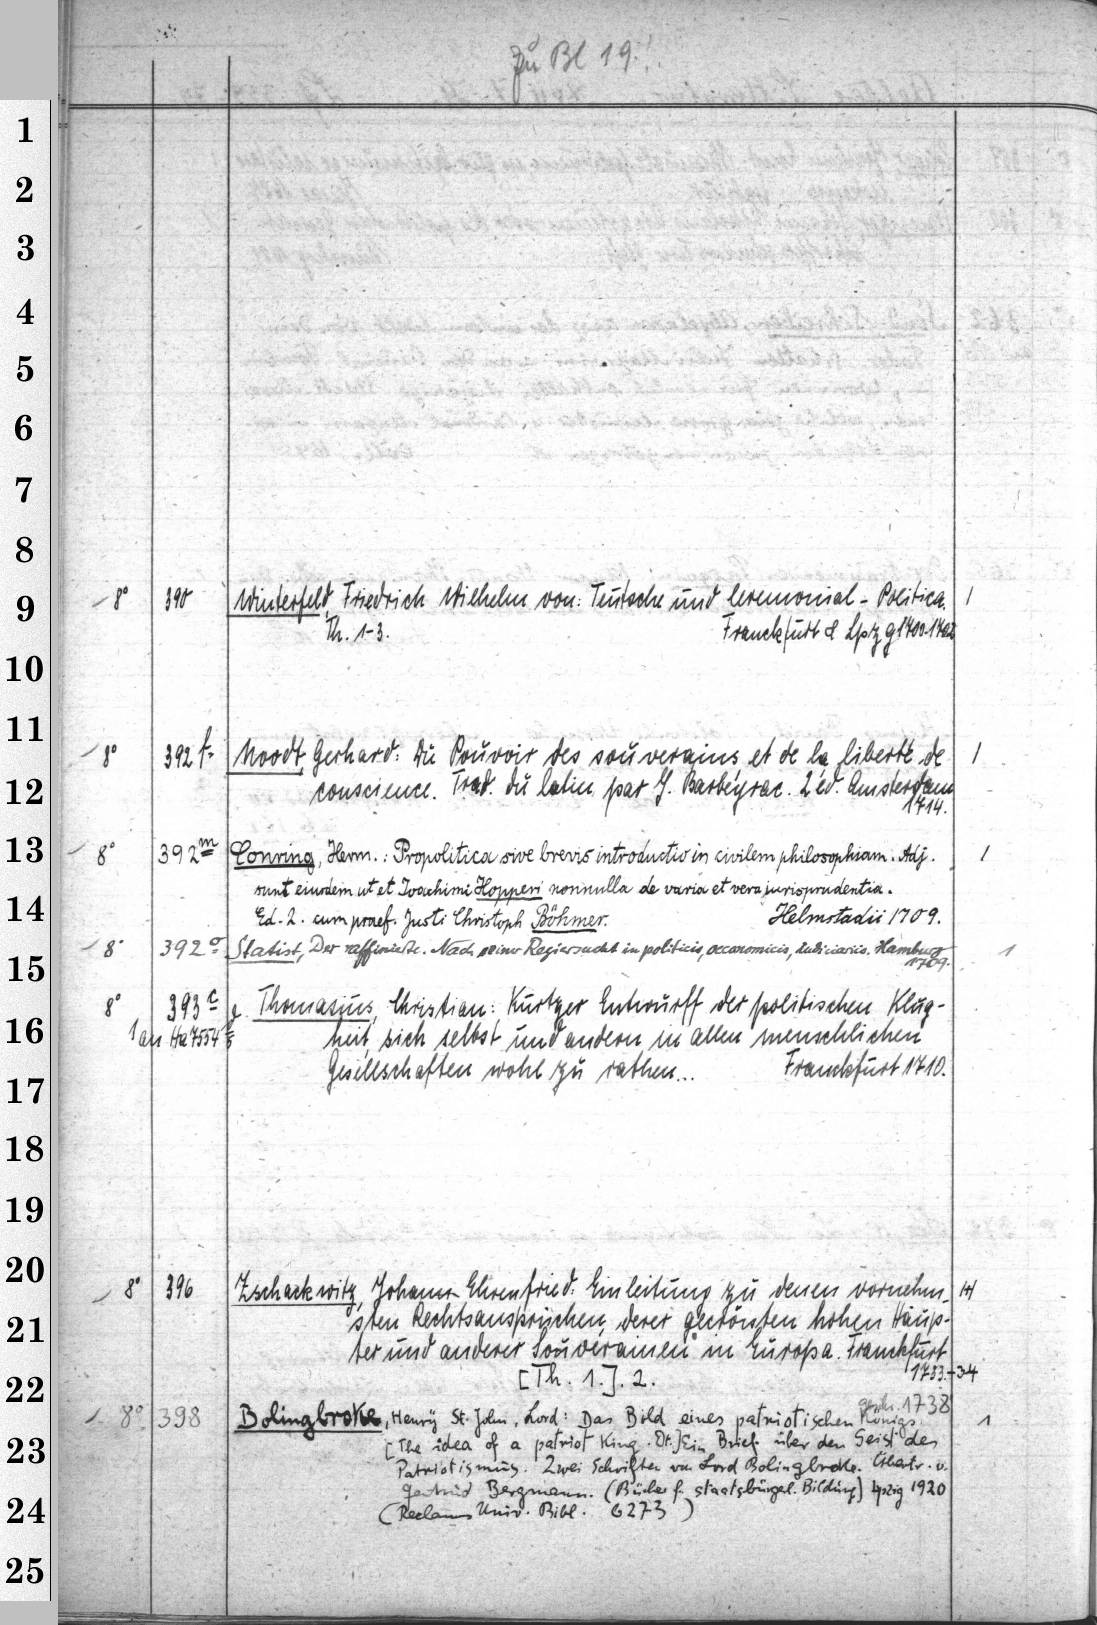 Zu Bl 19.
1
2
3
4
5
6
7
8
9
10
11
12
13
14
15
16
17
18
19
20
21
22
23
24
25
8° 390 Winterfeld, Friedrich Wilhelm von: Teutsche und Ceremonial-Politica. 1
Th. 1-3. Franckfurt & Lpzg 1700-1702
8° 392 f. Noodt, Gerhard: Du Pouvoir des souverains et de la liberté de 1
conscience. Trad. du latin par J. Barbeyrac. 2 éd. Amsterdam
1714.
8° 392 m Conring, Herm.: Propolitica sive brevis introductio in civilem philosophiam. Adj. 1
sunt eiusdem ut et Joachimi Hopperi nonnulla de varia et vera jurisprudentia.
Ed. 2. cum praef. Justi Christoph Böhmer. Helmstadii 1709.
8° 392 o Statist, Der raffinierte. Nach seiner Regiersucht in politicis, oeconomicis, judiciariis. Hamburg 1
1709.
8° 393 c Thomasius, Christian: Kurtzer Entwurff der politischen Klug-
1 an Ha 7554 heit, sich selbst und andern in allen menschlichen
Gesellschaften wohl zu rathen... Franckfurt 1710.
8° 396 Zschackwitz, Johann Ehrenfried: Einleitung zu denen vornehm-
sten Rechtsansprüchen, derer gecrönsten hohen Häup-
ter und anderer Souverainen in Europa. Franckfurt
1733.-34
[Th. 1.]. 2.
geschr. 1738
8° 398 Bolingbroke, Henry St. John, Lord: Das Bild eines patriotischen Königs. 1
[The idea of a patriot King. Dt.] Ein Brief über den Geist des
Patriotismus. Zwei Schriften von Lord Bolingbroke. Übertr. v.
Gertrud Bergmann. (Bücher f. staatsbürgerl. Bildung) Lpzig 1920
(Reclams Univ. Bibl. 6273)